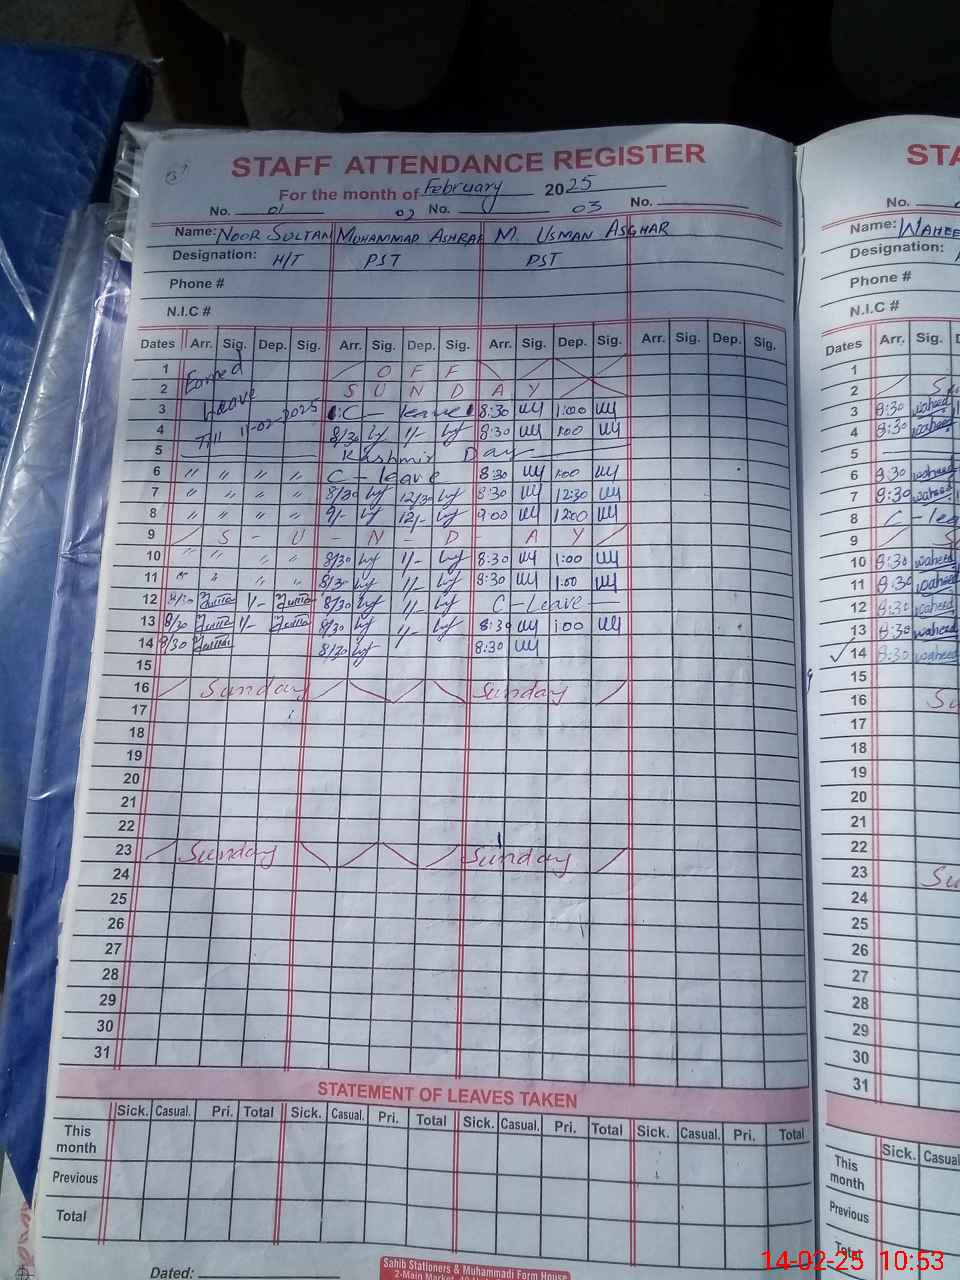 STAFF ATTENDANCE REGISTER
For the month of February 2025
No. 01 02 No. 03 No.
Name: NOOR SULTAN MUHAMMAD ASHRAF M. USMAN ASGHAR
Designation: H/T PST PST
Phone #
N.I.C #
Dates Arr. Sig. Dep. Sig. Arr. Sig. Dep. Sig. Arr. Sig. Dep. Sig. Arr. Sig. Dep. Sig.
1 Earned O F F
2 Leave S U N D A Y
3 Till 11-02-2025 C - leave 8:30 1:00
4 8/30 1/- 8:30 1:00
5 Kashmir Day
6 " " " " C - leave 8:30 1:00
7 " " " " 8/30 12/30 8:30 12:30
8 " " " " 9/- 12/- 9:00 12:00
9 S - U - N - D - A Y
10 " " " " 8/30 1/- 8:30 1:00
11 " " " " 8/30 1/- 8:30 1:00
12 8/30 1/- 8/30 1/- C - Leave -
13 8/30 1/- 8/30 1/- 8:30 1:00
14 8/30 8/30 8:30
15
16 Sunday Sunday
17
18
19
20
21
22
23 Sunday Sunday
24
25
26
27
28
29
30
31
STATEMENT OF LEAVES TAKEN
Sick. Casual. Pri. Total Sick. Casual. Pri. Total Sick. Casual. Pri. Total Sick. Casual. Pri. Total
This month
Previous
Total
Dated:
Sahib Stationers & Muhammadi Form House
2-Main Market
STA
No.
Name: WAHEE
Designation:
Phone #
N.I.C #
Dates Arr. Sig.
1
2 S
3 8:30 waheed
4 8:30 waheed
5
6 8:30 waheed
7 8:30 waheed
8 C - lea
9 S
10 8:30 waheed
11 8:30 waheed
12 8:30 waheed
13 8:30 waheed
14 8:30 waheed
15
16 Su
17
18
19
20
21
22
23 Su
24
25
26
27
28
29
30
31
Sick. Casual
This month
Previous
Total
14-02-25 10:53